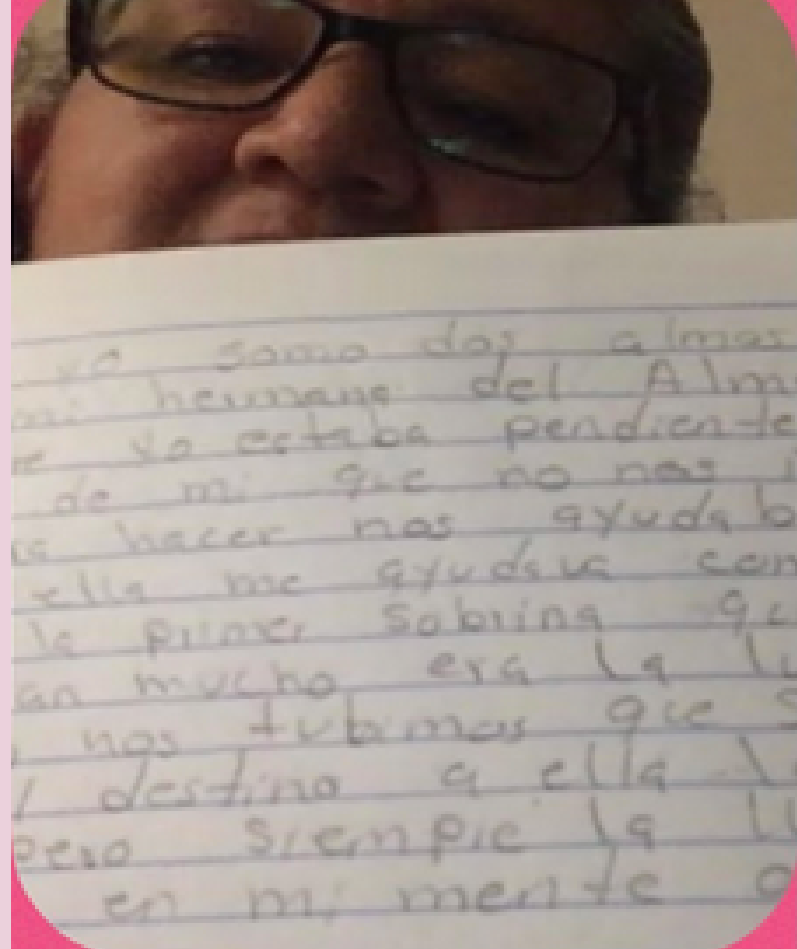 yo somo dos almas
mi hermana del Alm
e yo estaba pendiente
de mi que no nos i
ra hacer nos ayudab
ella me ayudava com
la primer sobrina qu
an mucho era la lu
nos tubimos que s
l destino a ella l
pero siempre la ll
en mi mente